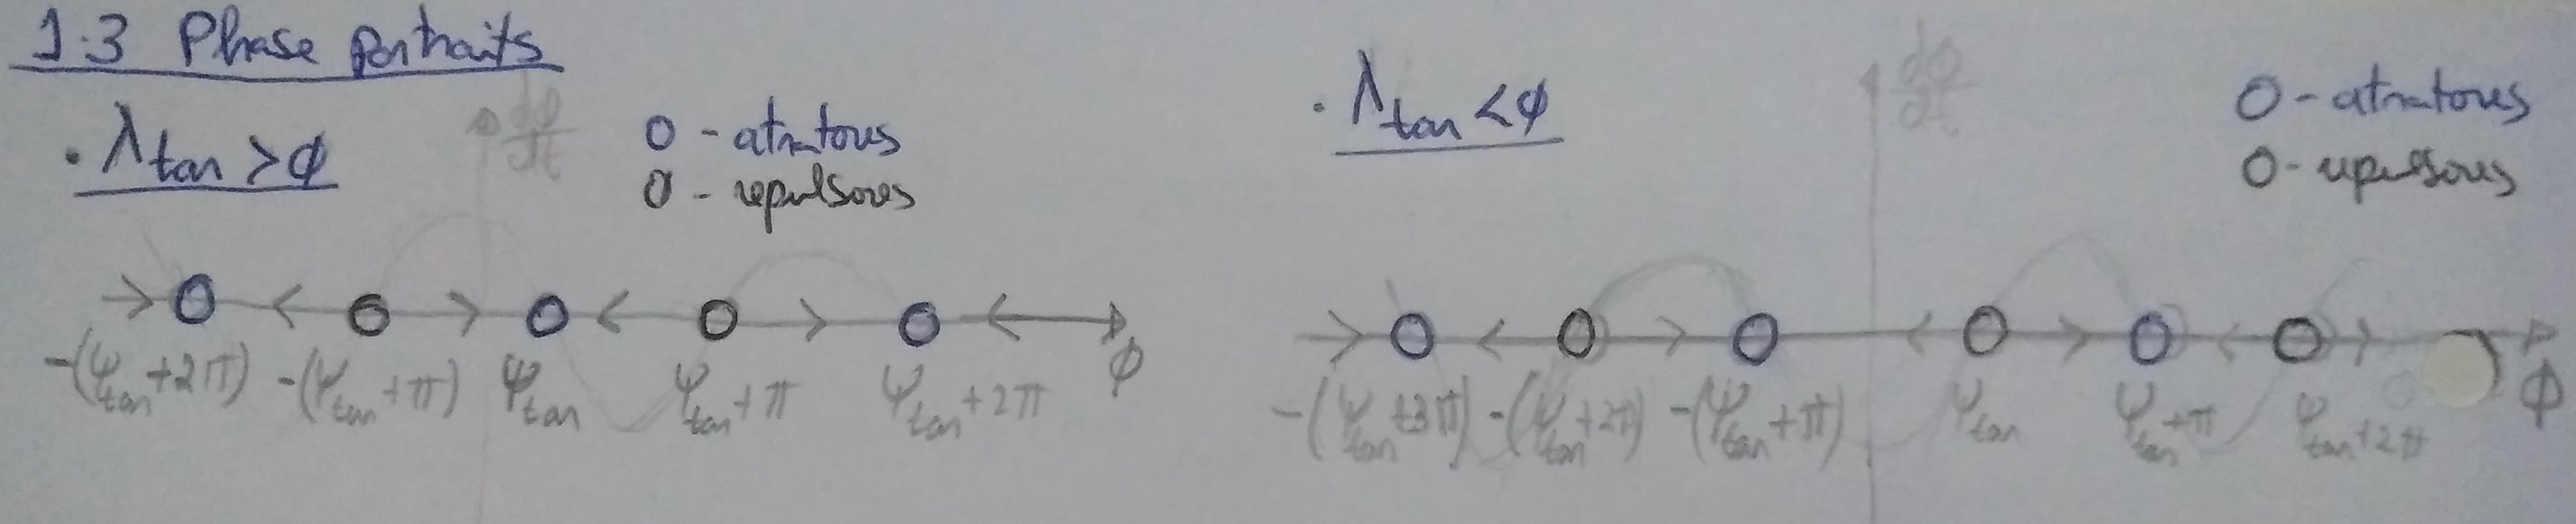 1.3 Phase portraits
· λtan > ϕ
dϕ/dt
O - atratores
O - repulsores
-(ψtan+2π) -(ψtan+π) ψtan ψtan+π ψtan+2π ϕ
· λtan < ϕ
dϕ/dt
O - atratores
O - repulsores
-(ψtan+3π) -(ψtan+2π) -(ψtan+π) ψtan ψtan+π ψtan+2π ϕ